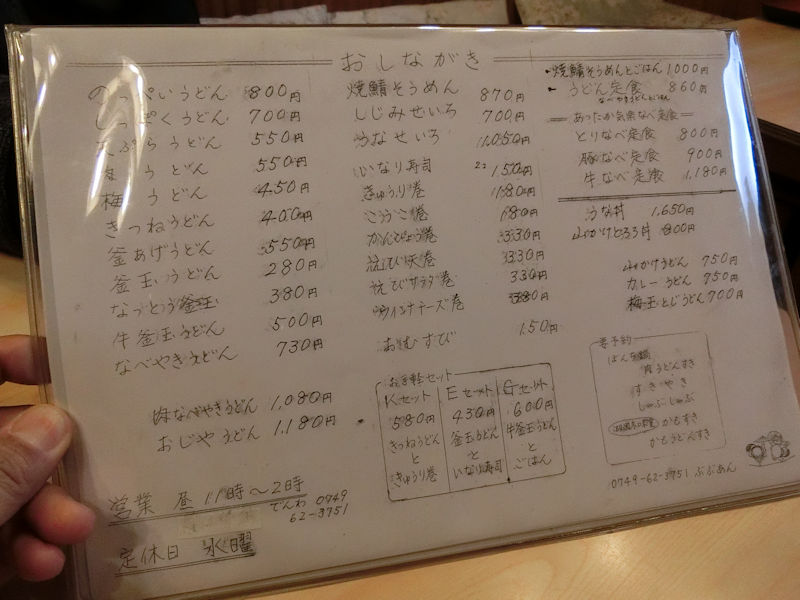 おしながき
のっぺいうどん 800円
しっぽくうどん 700円
天ぷらうどん 550円
肉うどん 550円
梅うどん 450円
きつねうどん 400円
釜あげうどん 550円
釜玉うどん 280円
なっとう釜玉 380円
牛釜玉うどん 500円
なべやきうどん 730円
肉なべやきうどん 1,080円
おじやうどん 1,180円
営業 昼 11時〜2時
でんわ 0749
62-3751
定休日 水曜
焼鯖そうめん 870円
しじみせいろ 700円
うなせいろ 1,050円
いなり寿司 2コ 150円
きゅうり巻 180円
こうこ巻 180円
かんぴょう巻 330円
海老天巻 330円
海老サラダ巻 330円
ウインナチーズ巻 380円
おむすび 150円
お手軽セット
Kセット
580円
きつねうどん
と
きゅうり巻
Eセット
430円
釜玉うどん
と
いなり寿司
Gセット
600円
牛釜玉うどん
と
ごはん
・焼鯖そうめんとごはん 1,000円
・うどん定食 860円
なべやきうどんとごはん
あったか気楽なべ定食
とりなべ定食 800円
豚なべ定食 900円
牛なべ定食 1,180円
うな丼 1,650円
山かけとろろ丼 800円
山かけうどん 750円
カレーうどん 950円
梅玉とじうどん 700円
要予約
肉うどんすき
すきやき
しゃぶしゃぶ
かもすき
かもうどんすき
0749-62-3751 ぷぷあん